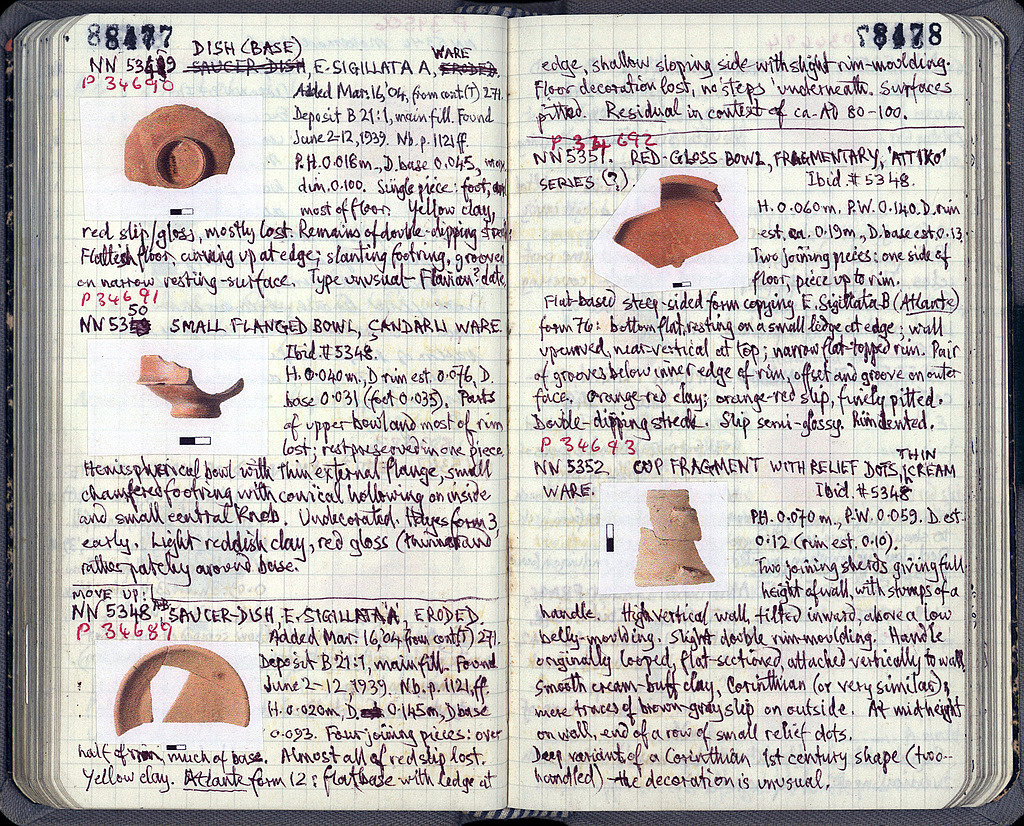 88477
DISH (BASE)
NN 5349 SAUCER DISH, E. SIGILLATA A, WARE ERODED.
P 34690
Added Mar. 16, '04, from cont(T) 271.
Deposit B 21:1, main fill. Found
June 2-12, 1939. Nb. p. 1121 ff.
P.H. 0.018m., D. base 0.045, max
dim. 0.100. Single piece: foot, and
most of floor. Yellow clay,
red slip/gloss, mostly lost. Remains of double-dipping streak
Flattish floor, curving up at edge; slanting footring, grooved
on narrow resting-surface. Type unusual - Flavian? date.
P 34691
NN 5350 SMALL FLANGED BOWL, ÇANDARLI WARE.
Ibid. # 5348.
H. 0.040m., D. rim est. 0.076, D.
base 0.031 (foot 0.035). Parts
of upper bowl and most of rim
lost; rest preserved in one piece
Hemispherical bowl with thin external flange, small
chamfered footring with conical hollowing on inside
and small central knob. Undecorated. Hayes form 3,
early. Light reddish clay, red gloss (thinner and
rather patchy around base.
MOVE UP:
NN 5348 AB SAUCER-DISH, E. SIGILLATA A, ERODED.
P 34689
Added Mar. 16, '04 from cont(T) 271.
Deposit B 21:1, main fill. Found
June 2-12, 1939. Nb. p. 1121, ff.
H. 0.020m, D. 0.145m, D base
0.093. Four joining pieces: over
half of rim, much of base. Almost all of red slip lost.
Yellow clay. Atlante form 12: flat base with ledge at
78478
edge, shallow sloping side with slight rim-moulding.
Floor decoration lost, no 'steps' underneath. Surfaces
pitted. Residual in context of ca. AD 80-100.
P 34692
NN 5351. RED-GLOSS BOWL, FRAGMENTARY, 'ATTIKO'
SERIES (?).
Ibid. # 5348.
H. 0.060m, P.W. 0.140. D. rim
est. ca. 0.19m., D. base est. 0.13.
Two joining pieces: one side of
floor, piece up to rim.
Flat-based steep-sided form copying E. Sigillata B (Atlante)
form 76: bottom flat, resting on a small ledge at edge; wall
upcurved, near-vertical at top; narrow flat-topped rim. Pair
of grooves below inner edge of rim, offset and groove on outer
face. Orange-red clay; orange-red slip, finely pitted.
Double-dipping streak. Slip semi-glossy. Rim dented.
P 34693
NN 5352 CUP FRAGMENT WITH RELIEF DOTS, THIN CREAM
WARE.
Ibid. # 5348
P.H. 0.070m., P.W. 0.059. D. est.
0.12 (rim est. 0.10).
Two joining sherds giving full
height of wall, with stumps of a
handle. High vertical wall, tilted inward, above a low
belly-moulding. Slight double rim-moulding. Handle
originally looped, flat-sectioned, attached vertically to wall.
Smooth cream-buff clay, Corinthian (or very similar);
mere traces of brown-gray slip on outside. At mid-height
on wall, end of a row of small relief dots.
Deep variant of a Corinthian 1st century shape (two-
handled) - the decoration is unusual.